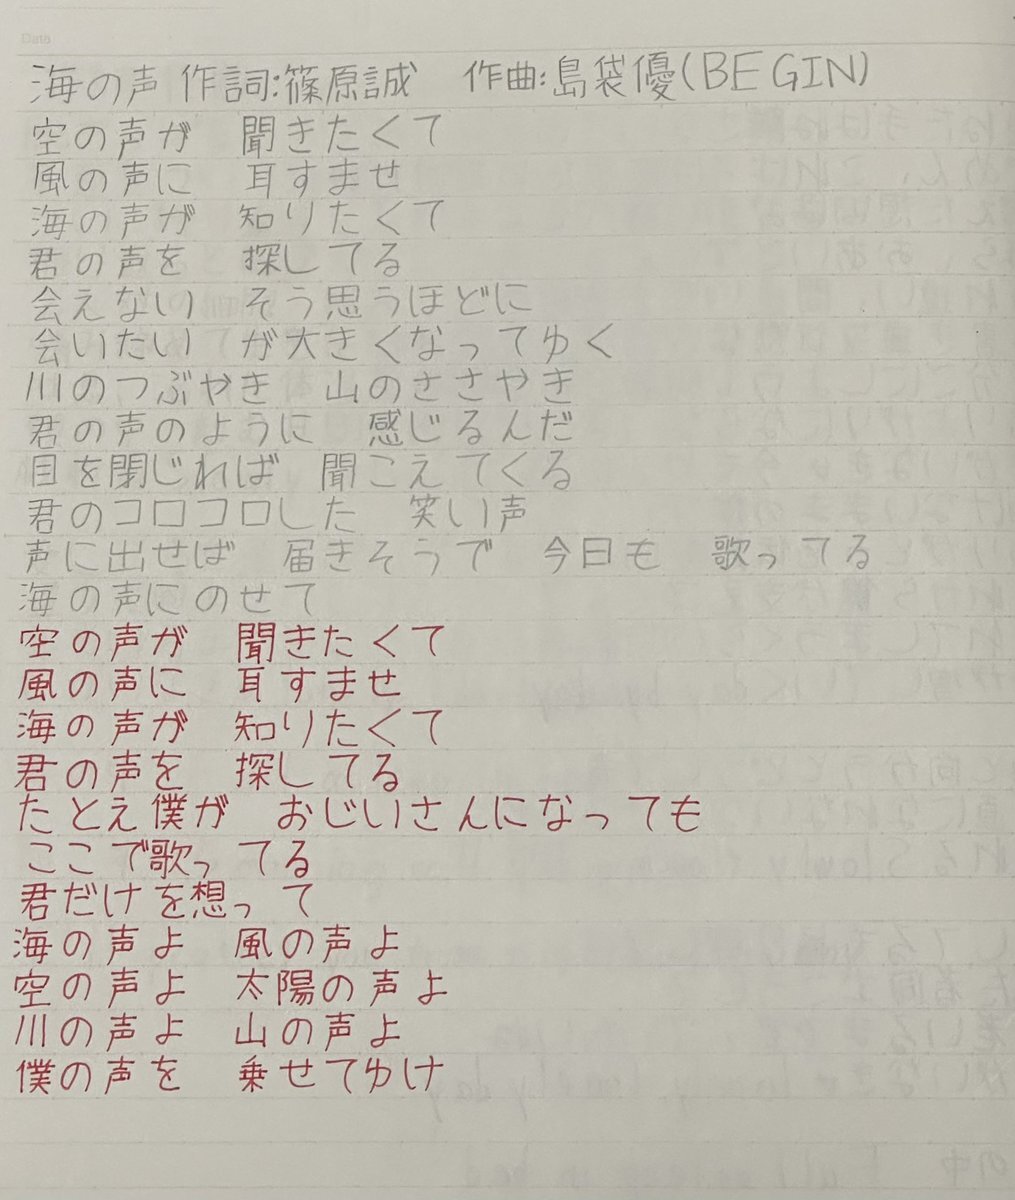 Date
海の声 作詞:篠原誠 作曲:島袋優(BEGIN)
空の声が 聞きたくて
風の声に 耳すませ
海の声が 知りたくて
君の声を 探してる
会えない そう思うほどに
会いたい が大きくなってゆく
川のつぶやき 山のささやき
君の声のように 感じるんだ
目を閉じれば 聞こえてくる
君のコロコロした 笑い声
声に出せば 届きそうで 今日も 歌ってる
海の声にのせて
空の声が 聞きたくて
風の声に 耳すませ
海の声が 知りたくて
君の声を 探してる
たとえ僕が おじいさんになっても
ここで歌ってる
君だけを想って
海の声よ 風の声よ
空の声よ 太陽の声よ
川の声よ 山の声よ
僕の声を 乗せてゆけ